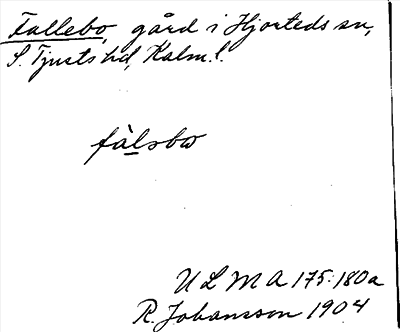 Fallebo, gård i Hjorteds sn,
S. Tjusts hd, Kalm. l.
fàlsbω
ULMA 175:180a
R. Johansson 1904